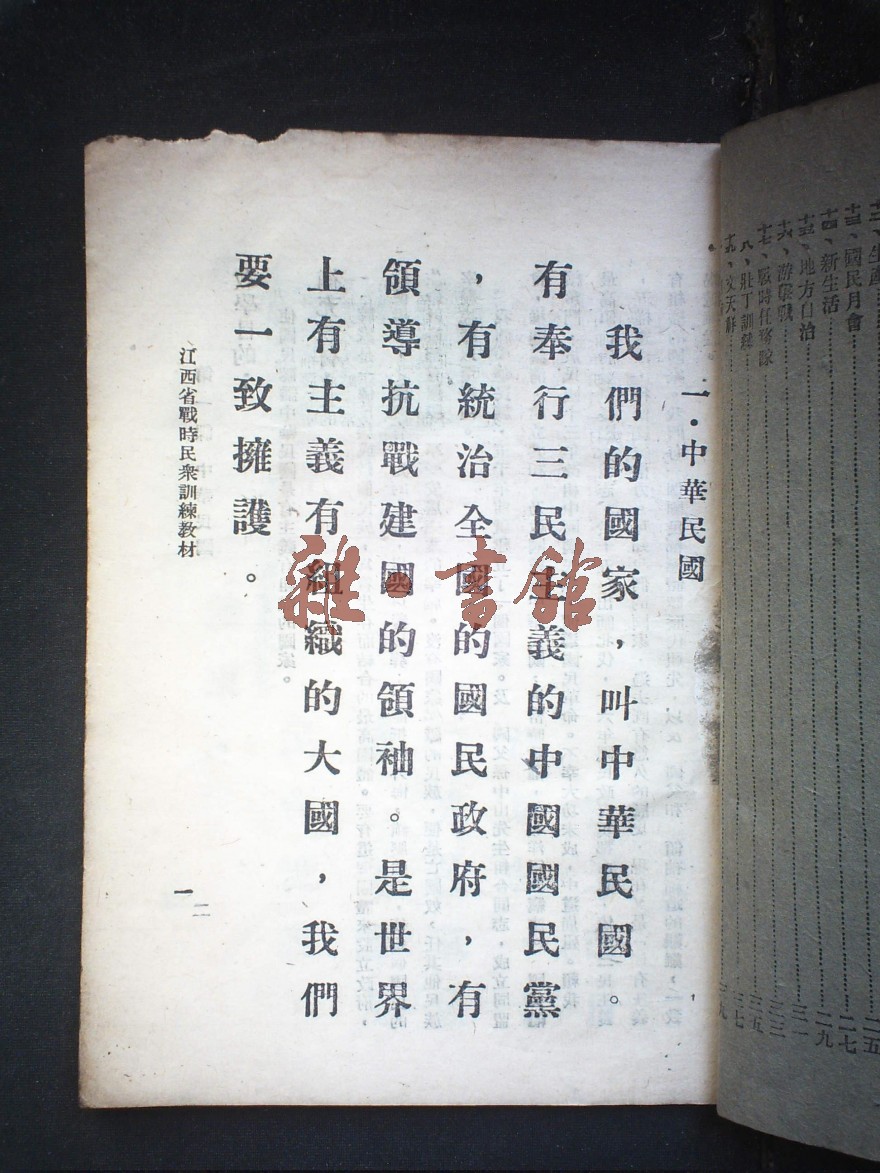 十三、國民月會
十四、新生活
十五、地方自治
十六、游擊戰
二五
二七
二九
三一
三三
三五
三七
一．中華民國
我們的國家，叫中華民國。
有奉行三民主義的中國國民黨
，有統治全國的國民政府，有
領導抗戰建國的領袖。是世界
上有主義有組織的大國，我們
要一致擁護。
江西省戰時民衆訓練教材
一
雜·書館